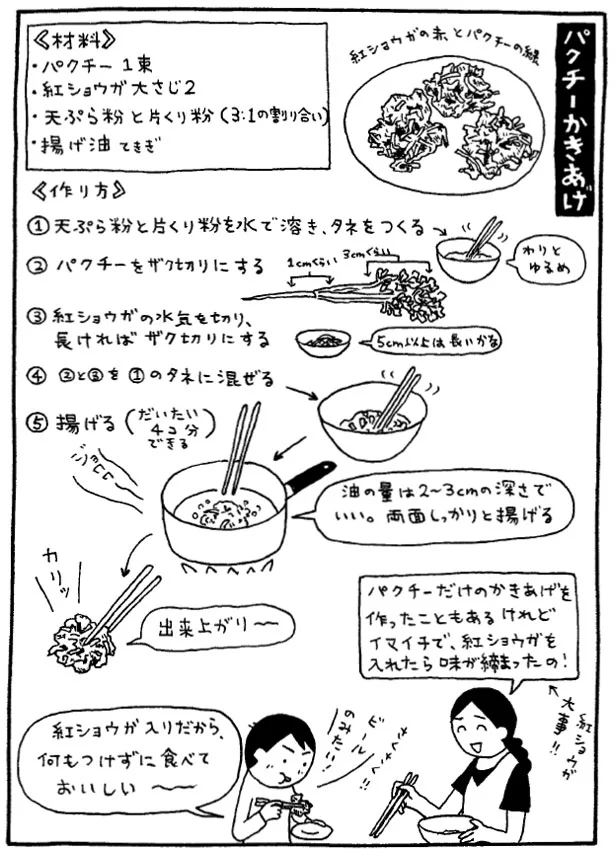 パクチーかきあげ
《材料》
・パクチー 1束
・紅ショウガ 大さじ2
・天ぷら粉と片くり粉(3:1の割り合い)
・揚げ油 てきぎ
紅ショウガの赤とパクチーの緑
《作り方》
①天ぷら粉と片くり粉を水で溶き、タネをつくる
わりと
ゆるめ
②パクチーをザク切りにする
1cmぐらい
3cmぐらい
③紅ショウガの水気を切り、
長ければザク切りにする
5cm以上は長いかな
④②と③を①のタネに混ぜる
⑤揚げる(だいたい
4コ分
できる)
油の量は2〜3cmの深さで
いい。両面しっかりと揚げる
カリッ
出来上がり〜〜
パクチーだけのかきあげを
作ったこともあるけれど
イマイチで、紅ショウガを
入れたら味が締まったの!
紅ショウガ
大事!!
紅ショウガ入りだから、
何もつけずに食べて
おいしい〜〜
ビール
のみたい!
さくさく!!